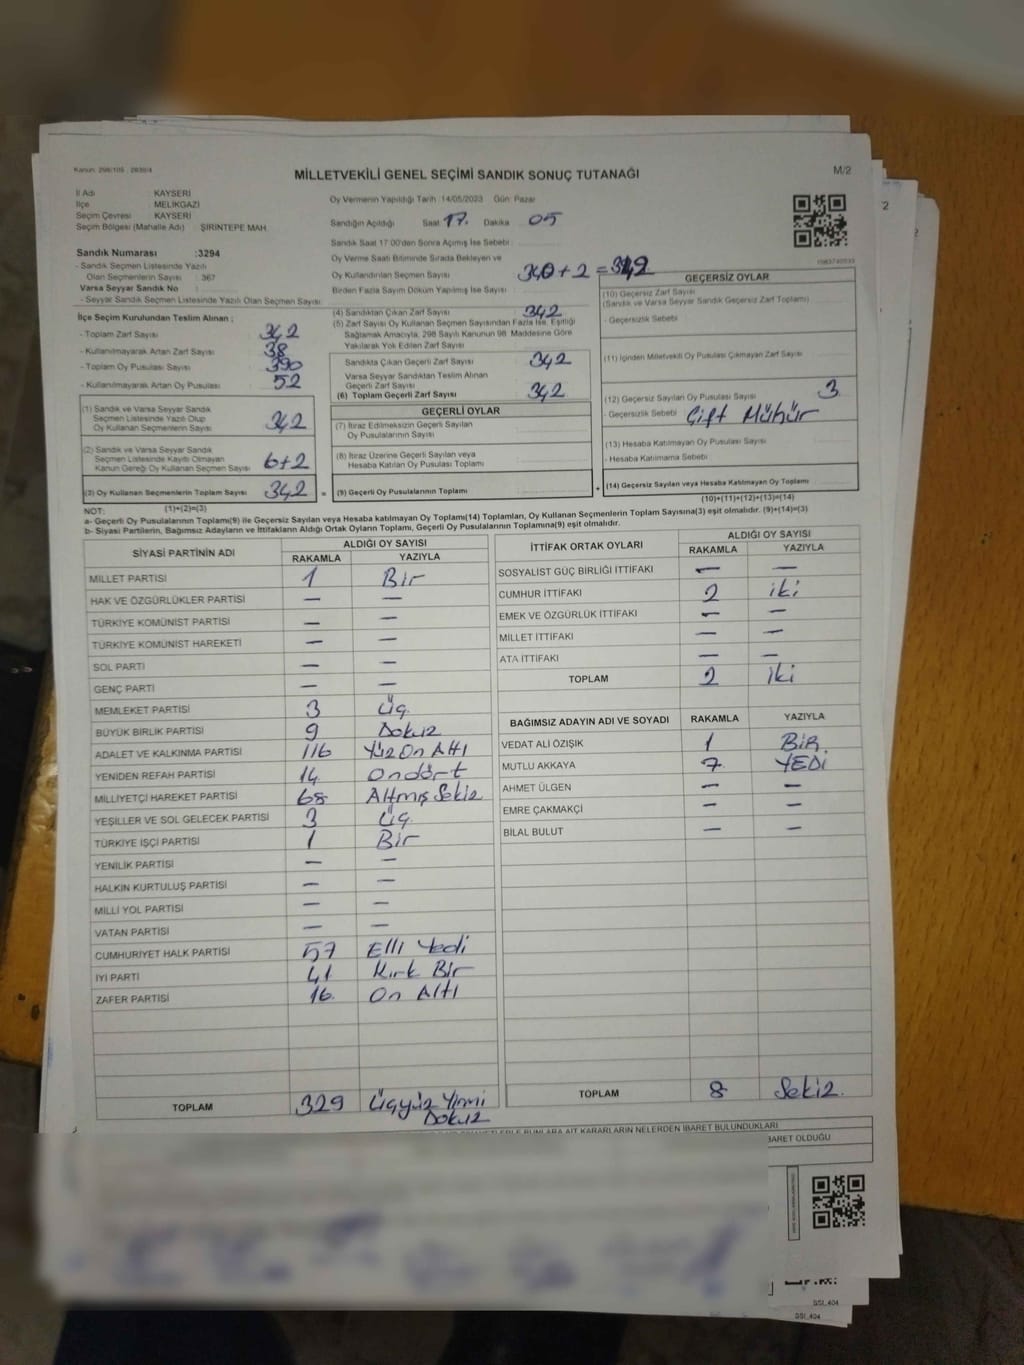 Kanun: 298/105 - 2839/4
MİLLETVEKİLİ GENEL SEÇİMİ SANDIK SONUÇ TUTANAĞI
M/2
İl Adı : KAYSERİ
İlçe : MELİKGAZİ
Seçim Çevresi : KAYSERİ
Seçim Bölgesi (Mahalle Adı) : ŞİRİNTEPE MAH.
Sandık Numarası :3294
- Sandık Seçmen Listesinde Yazılı
Olan Seçmenlerin Sayısı : 367
Varsa Seyyar Sandık No :
- Seyyar Sandık Seçmen Listesinde Yazılı Olan Seçmen Sayısı :
Oy Vermenin Yapıldığı Tarih :14/05/2023 Gün: Pazar
Sandığın Açıldığı Saat 17. Dakika 05
Sandık Saat 17:00'den Sonra Açılmış İse Sebebi :
Oy Verme Saati Bitiminde Sırada Bekleyen ve
Oy Kullandırılan Seçmen Sayısı 340+2=342
Birden Fazla Sayım Döküm Yapılmış İse Sayısı :
İlçe Seçim Kurulundan Teslim Alınan ;
- Toplam Zarf Sayısı 342
- Kullanılmayarak Artan Zarf Sayısı 38
- Toplam Oy Pusulası Sayısı 390
- Kullanılmayarak Artan Oy Pusulası 52
(1) Sandık ve Varsa Seyyar Sandık
Seçmen Listesinde Yazılı Olup
Oy Kullanan Seçmenlerin Sayısı 342
(2) Sandık ve Varsa Seyyar Sandık
Seçmen Listesinde Kayıtlı Olmayan
Kanun Gereği Oy Kullanan Seçmen Sayısı 6+2
(3) Oy Kullanan Seçmenlerin Toplam Sayısı 342 =
(1)+(2)=(3)
(4) Sandıktan Çıkan Zarf Sayısı 342
(5) Zarf Sayısı Oy Kullanan Seçmen Sayısından Fazla İse, Eşitliği
Sağlamak Amacıyla, 298 Sayılı Kanunun 98. Maddesine Göre
Yakılarak Yok Edilen Zarf Sayısı
Sandıkta Çıkan Geçerli Zarf Sayısı 342
Varsa Seyyar Sandıktan Teslim Alınan
Geçerli Zarf Sayısı
(6) Toplam Geçerli Zarf Sayısı 342
GEÇERLİ OYLAR
(7) İtiraz Edilmeksizin Geçerli Sayılan
Oy Pusulalarının Sayısı
(8) İtiraz Üzerine Geçerli Sayılan veya
Hesaba Katılan Oy Pusulası Toplamı
(9) Geçerli Oy Pusulalarının Toplamı +
GEÇERSİZ OYLAR
(10) Geçersiz Zarf Sayısı
(Sandık ve Varsa Seyyar Sandık Geçersiz Zarf Toplamı)
- Geçersizlik Sebebi :
(11) İçinden Milletvekili Oy Pusulası Çıkmayan Zarf Sayısı
(12) Geçersiz Sayılan Oy Pusulası Sayısı 3
- Geçersizlik Sebebi : Çift Mühür
(13) Hesaba Katılmayan Oy Pusulası Sayısı
- Hesaba Katılmama Sebebi :
(14) Geçersiz Sayılan veya Hesaba Katılmayan Oy Toplamı
(10)+(11)+(12)+(13)=(14)
NOT:
a- Geçerli Oy Pusulalarının Toplamı(9) ile Geçersiz Sayılan veya Hesaba katılmayan Oy Toplamı(14) Toplamları, Oy Kullanan Seçmenlerin Toplam Sayısına(3) eşit olmalıdır. (9)+(14)=(3)
b- Siyasi Partilerin, Bağımsız Adayların ve İttifakların Aldığı Ortak Oyların Toplamı, Geçerli Oy Pusulalarının Toplamına(9) eşit olmalıdır.
SİYASİ PARTİNİN ADI ALDIĞI OY SAYISI
RAKAMLA YAZIYLA
MİLLET PARTİSİ 1 Bir
HAK VE ÖZGÜRLÜKLER PARTİSİ — —
TÜRKİYE KOMÜNİST PARTİSİ — —
TÜRKİYE KOMÜNİST HAREKETİ — —
SOL PARTİ — —
GENÇ PARTİ — —
MEMLEKET PARTİSİ 3 Üç
BÜYÜK BİRLİK PARTİSİ 9 Dokuz
ADALET VE KALKINMA PARTİSİ 116 Yüz On Altı
YENİDEN REFAH PARTİSİ 14 Ondört
MİLLİYETÇİ HAREKET PARTİSİ 68 Altmış Sekiz
YEŞİLLER VE SOL GELECEK PARTİSİ 3 Üç
TÜRKİYE İŞÇİ PARTİSİ 1 Bir
YENİLİK PARTİSİ — —
HALKIN KURTULUŞ PARTİSİ — —
MİLLİ YOL PARTİSİ — —
VATAN PARTİSİ — —
CUMHURİYET HALK PARTİSİ 57 Elli Yedi
İYİ PARTİ 41 Kırk Bir
ZAFER PARTİSİ 16 On Altı
TOPLAM 329 Üçyüz Yirmi
Dokuz
İTTİFAK ORTAK OYLARI ALDIĞI OY SAYISI
RAKAMLA YAZIYLA
SOSYALİST GÜÇ BİRLİĞİ İTTİFAKI — —
CUMHUR İTTİFAKI 2 iki
EMEK VE ÖZGÜRLÜK İTTİFAKI — —
MİLLET İTTİFAKI — —
ATA İTTİFAKI — —
TOPLAM 2 iki
BAĞIMSIZ ADAYIN ADI VE SOYADI RAKAMLA YAZIYLA
VEDAT ALİ ÖZIŞIK 1 BİR.
MUTLU AKKAYA 7. YEDİ
AHMET ÜLGEN — —
EMRE ÇAKMAKÇİ — —
BİLAL BULUT — —
TOPLAM 8 Sekiz.
BUNLARA AİT KARARLARIN NELERDEN İBARET BULUNDUKLARI
İBARET OLDUĞU